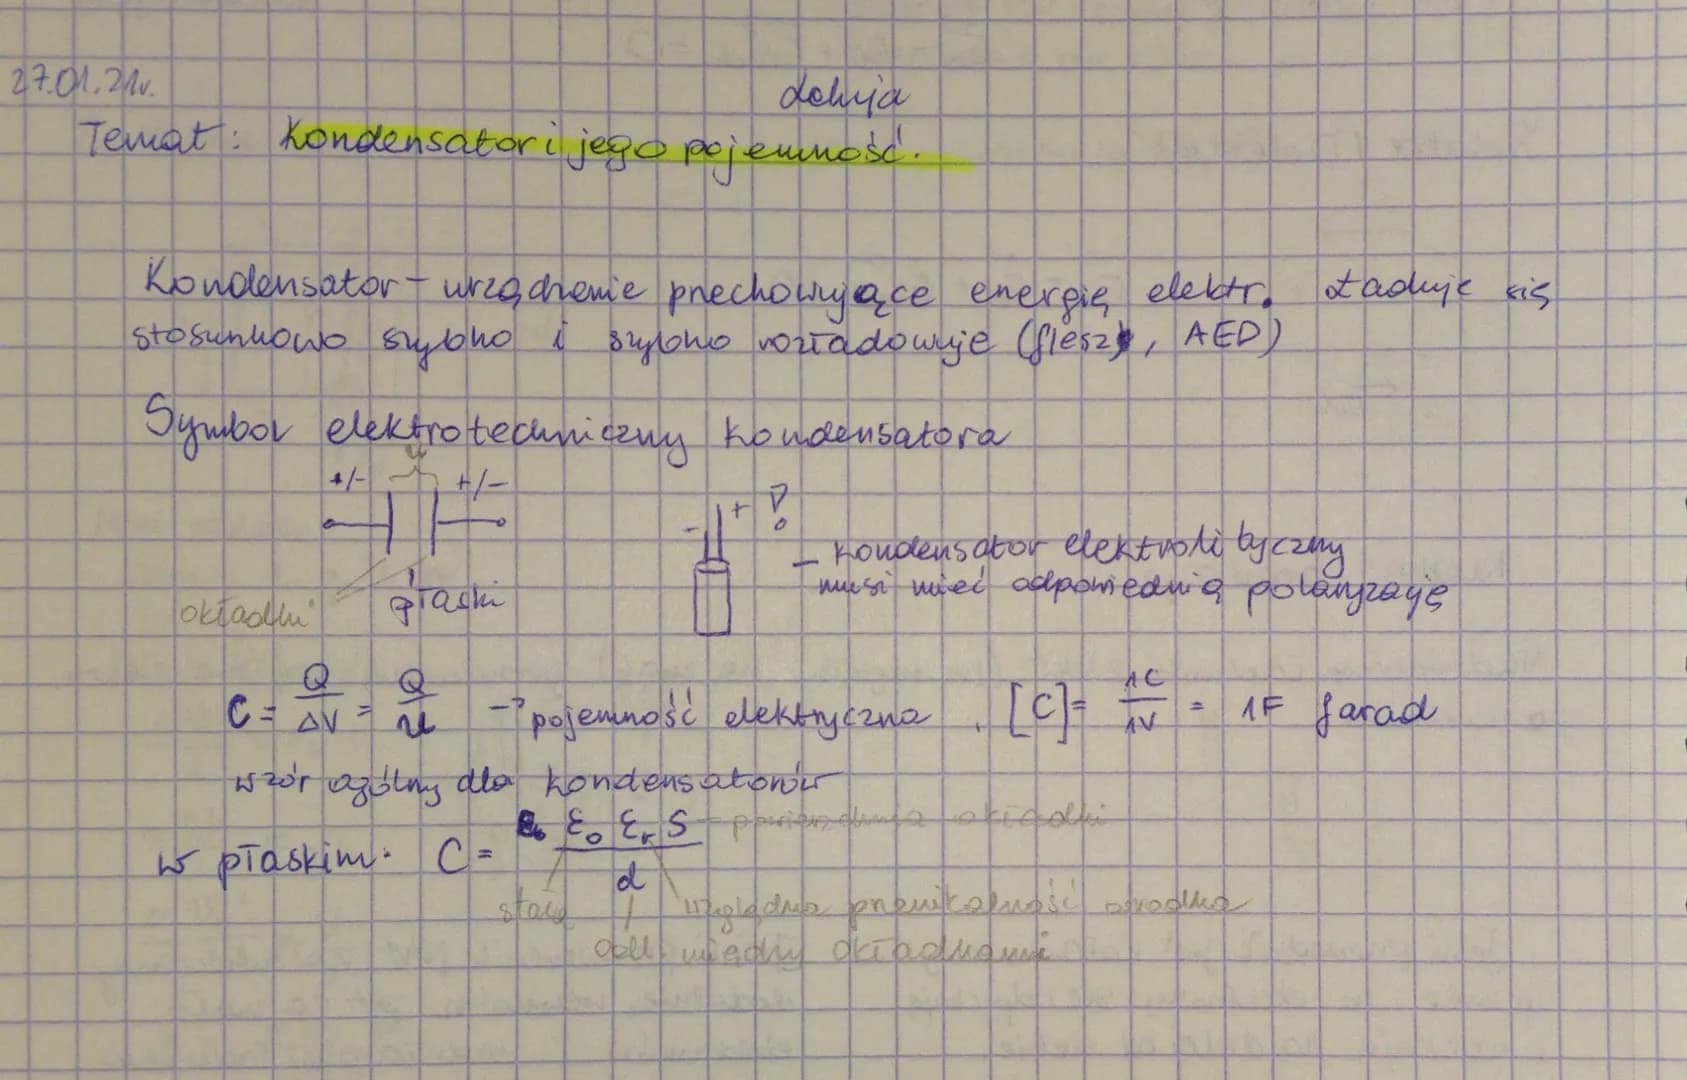 27.01.21r.
Lekcja
Temat: Kondensator i jego pojemność.
Kondensator - urządzenie przechowujące energię elektr. Ładuje się
stosunkowo szybko i szybko rozładowuje (flesz, AED)
Symbol elektrotechniczny kondensatora
U
+/- +/-
- + !
okładki płaski
- kondensator elektrolityczny
musi mieć odpowiednią polaryzację
C = Q/ΔV = Q/U → pojemność elektryczna, [C] = 1C/1V = 1F farad
wzór ogólny dla kondensatorów
w płaskim. C = ε₀ εᵣ S / d
powierzchnia okładki
stała względna przenikalność ośrodka
odl. między okładkami